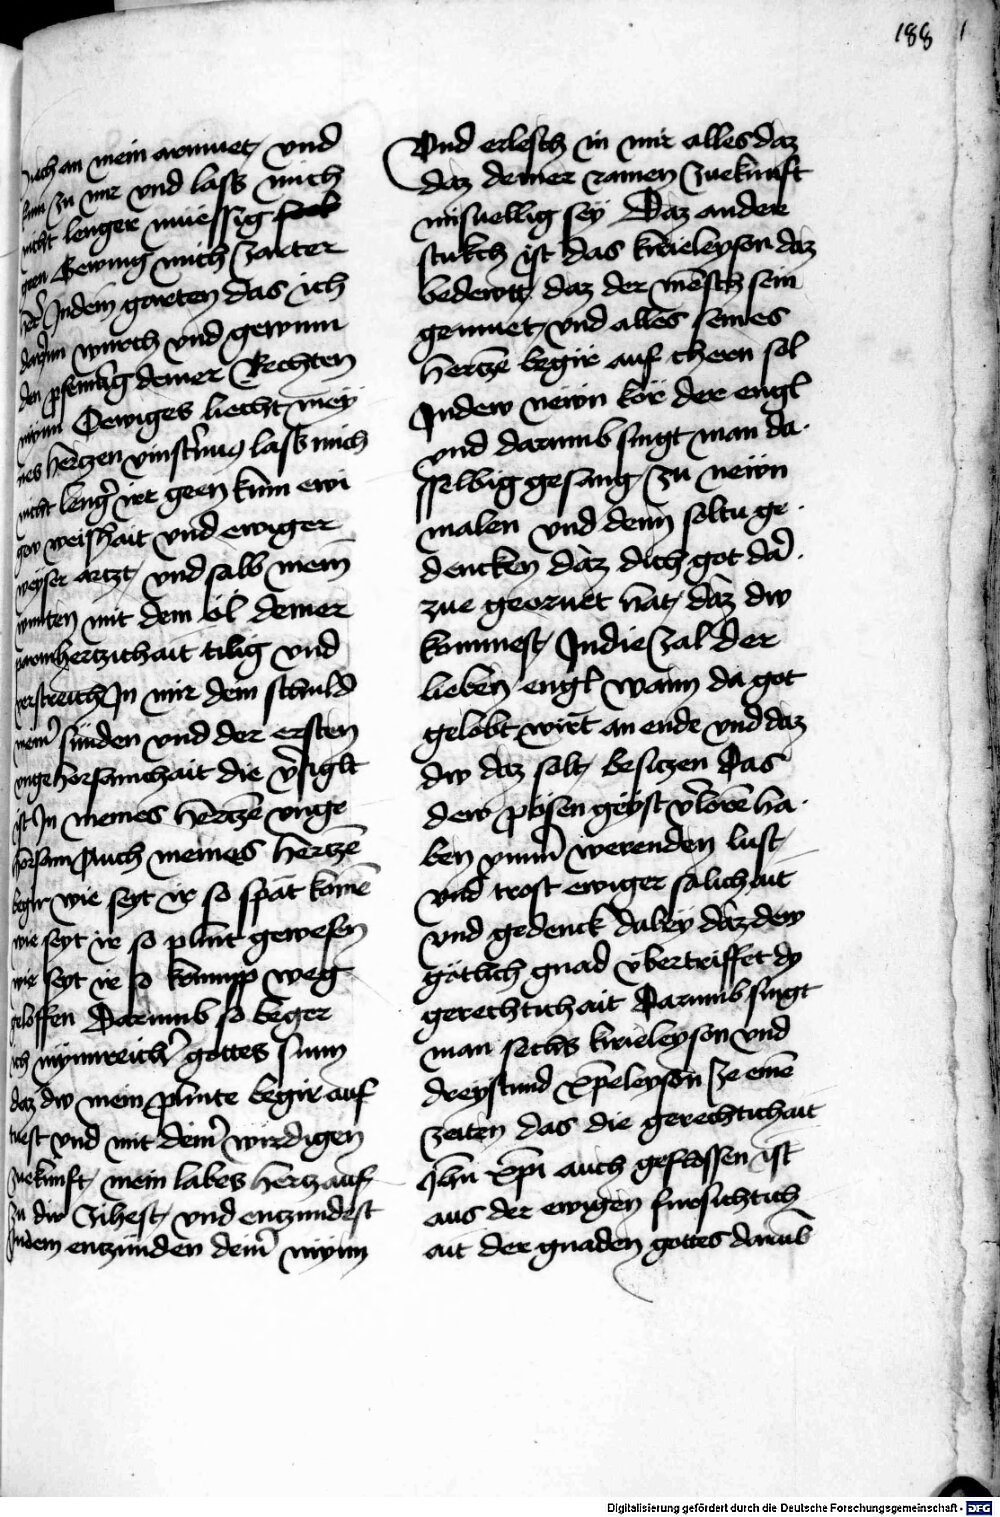 188
mein armuet und
kum zu mir und lass mich
nicht lenger müessig
geen Gewing mich zarter
her Indem garten das ich
darinn wurch und gewinn
den pfennig deiner Rechten
mynn O ewiges liecht mey
nes hertzen vinstrnus lass mich
nicht leng̉ irr geen kum ewi
gew weishait und ewiger
weyser artzt und salb mein
wunten mit dem öl deiner
parmhertzichait tilig und
verstreich In mir dein schuld
meiner sünden und der ersten
ungehorsamchait die v̉siglt
ist In meines hertzē unge
horsam Auch meines hertzē
begir wie seyt ir so spät komē
wie seyt ir so plint gewesen
wie seyt ir so krumpp weg
geloffen Darumb so beger
ich mynnreich̉ gottes sunn
daz dw mein plinte begir auf
tuest und mit deiner wirdigen
zuekunft mein labes hertz auf
zu dir zihest und entzundest
Indem entzünden deiner mynn
Und erlesch in mir alles daz
daz deiner ramen zuekunft
misuellig sey Daz ander
stukch ist das kirieleyson daz
bedewtt daz der mēsch sein
gemuet und alles seines
hertzē begir auf chern sol
Indew newn kör der engl
und darumb singt man da
selbig gesang zu newn
malen und denn soltu ge
dencken daz dich got dar
zue geornet hat daz dw
kommest Indie zal der
lieben engl wann da got
gelobt wirt an ende und daz
dw daz solt besitzen Das
dew pösen geyst v̉lorē ha
ben ymm̉ werenden lust
und trost ewiger sälichait
und gedenck dabey daz dew
götlich gnad übertriffet dy
gerechtichait Darumb singt
man sechs kirieleyson und
dreystund xp̄eleyson ze einē
zeiten das die gerechtichait
Jhū xp̄i auch geflossen ist
aus der ewigen fursichtich
ait der gnaden gottes darūb
Digitalisierung gefördert durch die Deutsche Forschungsgemeinschaft - DFG